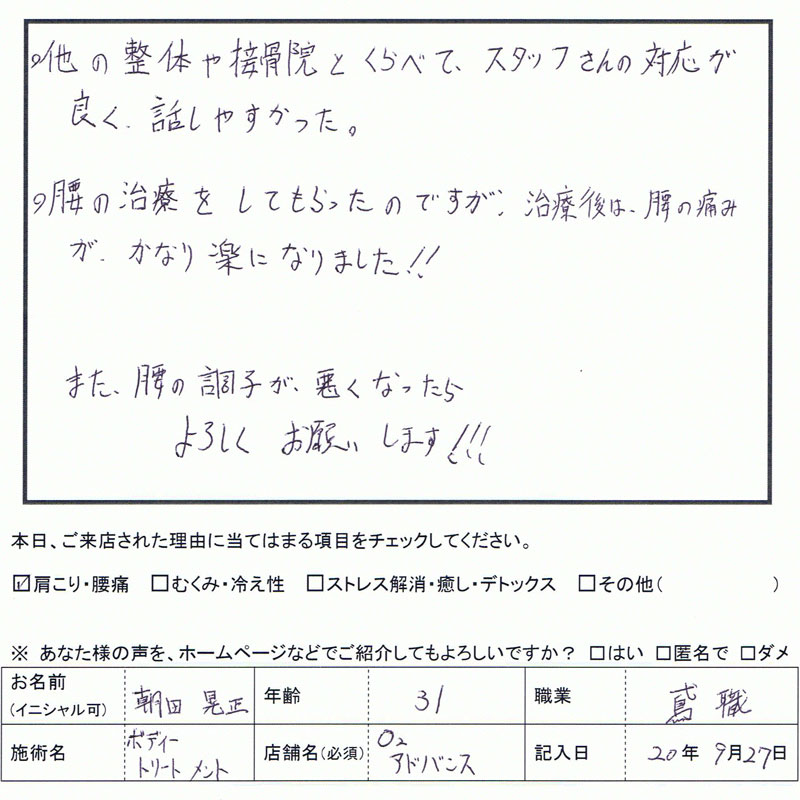 ○他の整体や接骨院とくらべて、スタッフさんの対応が
良く、話しやすかった。
○腰の治療をしてもらったのですが、治療後は、腰の痛み
が、かなり楽になりました!!
また、腰の調子が、悪くなったら
よろしくお願いします!!!
本日、ご来店された理由に当てはまる項目をチェックしてください。
☑肩こり・腰痛 □むくみ・冷え性 □ストレス解消・癒し・デトックス □その他( )
※ あなた様の声を、ホームページなどでご紹介してもよろしいですか? □はい □匿名で □ダメ
お名前 (イニシャル可) 朝田 晃正 年齢 31 職業 鳶職
施術名 ボディートリートメント 店舗名(必須) O2アドバンス 記入日 20年 9月27日